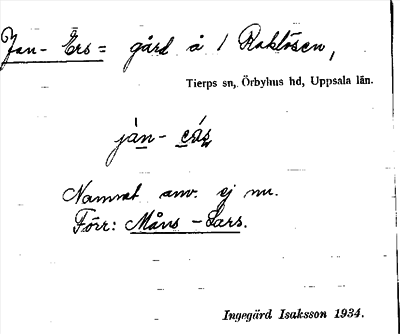 Jan-Ers = gård å / Raklösen,
Tierps sn, Örbyhus hd, Uppsala län.
jàn-
Namnet anv. ej nu.
Förr: Måns-Lars.
Ingegärd Isaksson 1934.